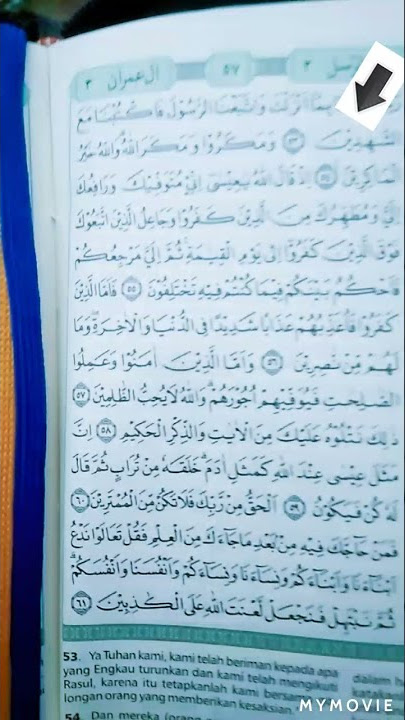 اٰل عمران ٣
٥٧
٣
بِمَآ اَنْزَلْتَ وَاتَّبَعْنَا الرَّسُوْلَ فَاكْتُبْنَا مَعَ
الشّٰهِدِيْنَ ﴿٥٣﴾ وَمَكَرُوْا وَمَكَرَ اللّٰهُ وَاللّٰهُ خَيْرُ
الْمَاكِرِيْنَ ﴿٥٤﴾ اِذْ قَالَ اللّٰهُ يٰعِيْسٰٓى اِنِّيْ مُتَوَفِّيْكَ وَرَافِعُكَ
اِلَيَّ وَمُطَهِّرُكَ مِنَ الَّذِيْنَ كَفَرُوْا وَجَاعِلُ الَّذِيْنَ اتَّبَعُوْكَ
فَوْقَ الَّذِيْنَ كَفَرُوْٓا اِلٰى يَوْمِ الْقِيٰمَةِ ثُمَّ اِلَيَّ مَرْجِعُكُمْ
فَاَحْكُمُ بَيْنَكُمْ فِيْمَا كُنْتُمْ فِيْهِ تَخْتَلِفُوْنَ ﴿٥٥﴾ فَاَمَّا الَّذِيْنَ
كَفَرُوْا فَاُعَذِّبُهُمْ عَذَابًا شَدِيْدًا فِى الدُّنْيَا وَالْاٰخِرَةِ وَمَا
لَهُمْ مِّنْ نّٰصِرِيْنَ ﴿٥٦﴾ وَاَمَّا الَّذِيْنَ اٰمَنُوْا وَعَمِلُوا
الصّٰلِحٰتِ فَيُوَفِّيْهِمْ اُجُوْرَهُمْ وَاللّٰهُ لَا يُحِبُّ الظّٰلِمِيْنَ ﴿٥٧﴾
ذٰلِكَ نَتْلُوْهُ عَلَيْكَ مِنَ الْاٰيٰتِ وَالذِّكْرِ الْحَكِيْمِ ﴿٥٨﴾ اِنَّ
مَثَلَ عِيْسٰى عِنْدَ اللّٰهِ كَمَثَلِ اٰدَمَ خَلَقَهٗ مِنْ تُرَابٍ ثُمَّ قَالَ
لَهٗ كُنْ فَيَكُوْنُ ﴿٥٩﴾ اَلْحَقُّ مِنْ رَّبِّكَ فَلَا تَكُنْ مِّنَ الْمُمْتَرِيْنَ ﴿٦٠﴾
فَمَنْ حَآجَّكَ فِيْهِ مِنْ بَعْدِ مَا جَآءَكَ مِنَ الْعِلْمِ فَقُلْ تَعَالَوْا نَدْعُ
اَبْنَآءَنَا وَاَبْنَآءَكُمْ وَنِسَآءَنَا وَنِسَآءَكُمْ وَاَنْفُسَنَا وَاَنْفُسَكُمْ
ثُمَّ نَبْتَهِلْ فَنَجْعَلْ لَّعْنَتَ اللّٰهِ عَلَى الْكٰذِبِيْنَ ﴿٦١﴾
53. Ya Tuhan kami, kami telah beriman kepada apa
yang Engkau turunkan dan kami telah mengikuti
Rasul, karena itu tetapkanlah kami bersama
longan orang yang memberikan kesaksian
54. Dan mereka (orang
dalam
MYMOVIE